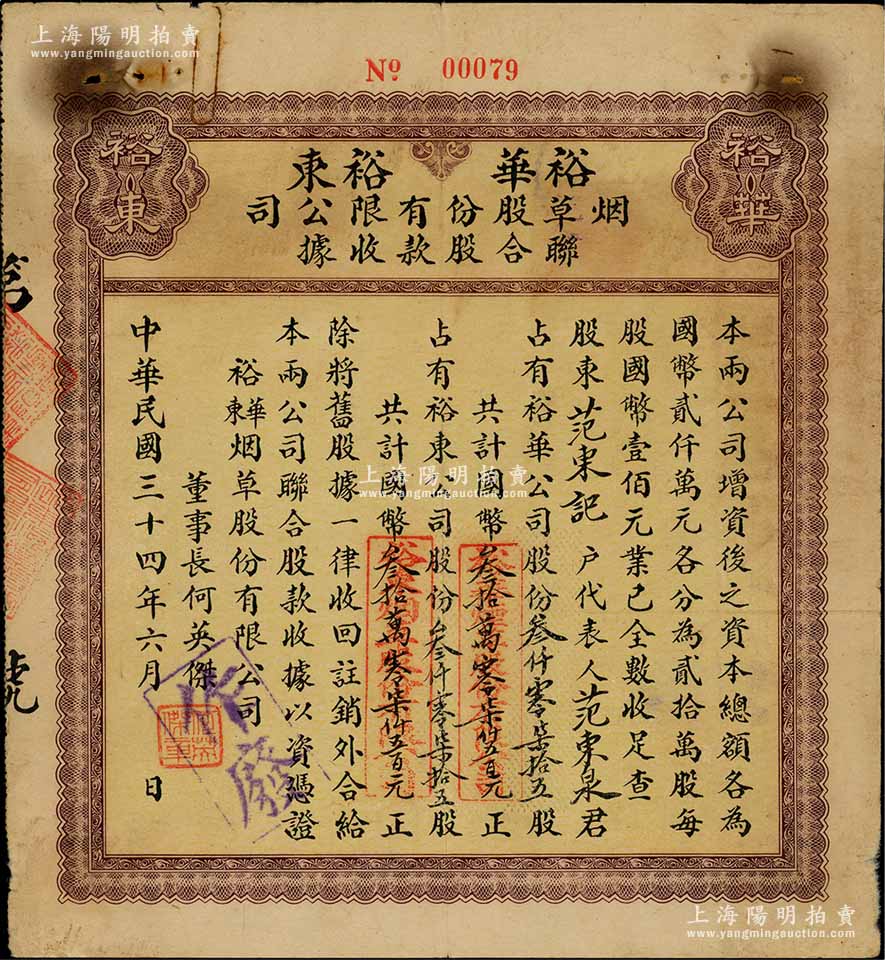 上海陽明拍賣
www.yangmingauction.com
上海陽明拍賣
www.yangmingauction.com
Nº 00079
裕華
裕東
裕華 裕東
烟草股份有限公司
聯合股款收據
本兩公司增資後之資本總額各為
國幣貳仟萬元各分為貳拾萬股每
股國幣壹佰元業已全數收足查
股東范東記戶代表人范東泉君
占有裕華公司股份叁仟零柒拾五股
共計國幣叁拾萬零柒仟五百元正
占有裕東公司股份叁仟零柒拾五股
共計國幣叁拾萬零柒仟五百元正
除將舊股據一律收回註銷外合給
本兩公司聯合股款收據以資憑證
裕華東烟草股份有限公司
董事長何英傑
中華民國三十四年六月 日
作廢
上海陽明拍賣
www.yangmingauction.com
號
上海陽明拍賣
www.yangmingauction.com